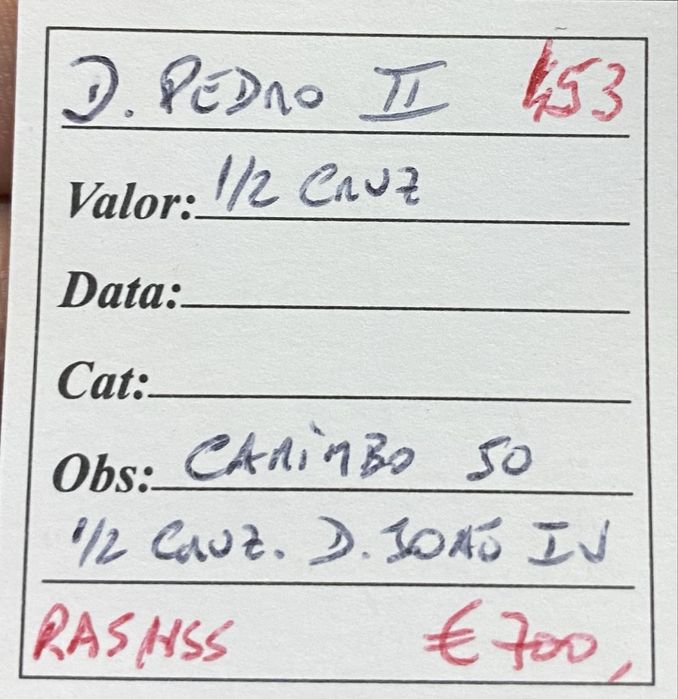 D. PEDRO II 453
Valor: 1/2 CRUZ
Data:
Cat:
Obs: CARIMBO 50
1/2 CRUZ. D. JOÃO IV
€ 700,